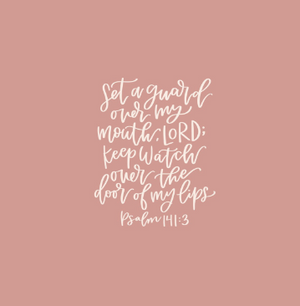 Set a guard
over my
mouth, LORD;
keep watch
over the
door of my lips
Psalm 141:3